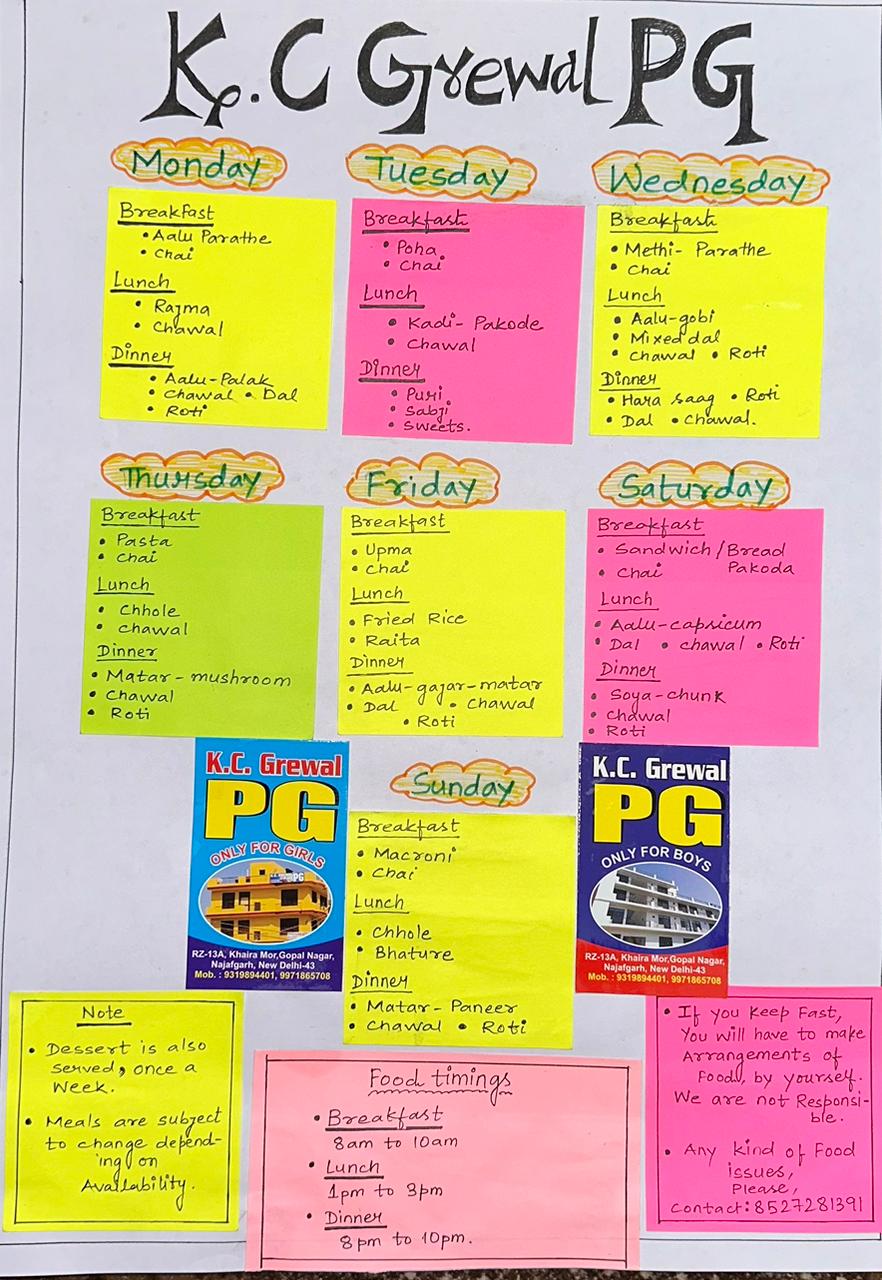 K.C Grewal PG
Monday
Breakfast
• Aalu Parathe
• Chai
Lunch
• Rajma
• Chawal
Dinner
• Aalu-Palak
• Chawal • Dal
• Roti
Tuesday
Breakfast
• Poha
• Chai
Lunch
• Kadi-Pakode
• Chawal
Dinner
• Puri
• Sabji
• Sweets.
Wednesday
Breakfast
• Methi-Parathe
• Chai
Lunch
• Aalu-gobi
• Mixed dal
• Chawal • Roti
Dinner
• Hara Saag • Roti
• Dal • Chawal.
Thursday
Breakfast
• Pasta
• Chai
Lunch
• Chhole
• Chawal
Dinner
• Matar-mushroom
• Chawal
• Roti
Friday
Breakfast
• Upma
• Chai
Lunch
• Fried Rice
• Raita
Dinner
• Aalu-gajar-matar
• Dal • Chawal
• Roti
Saturday
Breakfast
• Sandwich/Bread
Pakoda
• Chai
Lunch
• Aalu-capsicum
• Dal • chawal • Roti
Dinner
• Soya-chunk
• Chawal
• Roti
K.C. Grewal
PG
ONLY FOR GIRLS
PG
RZ-13A, Khaira Mor,Gopal Nagar,
Najafgarh, New Delhi-43
Mob. : 9319894401, 9971865708
Sunday
Breakfast
• Macroni
• Chai
Lunch
• Chhole
• Bhature
Dinner
• Matar-Paneer
• Chawal • Roti
K.C. Grewal
PG
ONLY FOR BOYS
RZ-13A, Khaira Mor,Gopal Nagar,
Najafgarh, New Delhi-43
Mob. : 9319894401, 9971865708
Note
• Dessert is also
served, once a
Week.
• Meals are subject
to change depend-
ing on
Availability.
Food timings
• Breakfast
8am to 10am
• Lunch
1pm to 3pm
• Dinner
8pm to 10pm.
• If you keep Fast,
You will have to make
Arrangements of
Food, by yourself.
We are not Responsi-
ble.
• Any kind of Food
issues,
Please,
Contact:8527281391